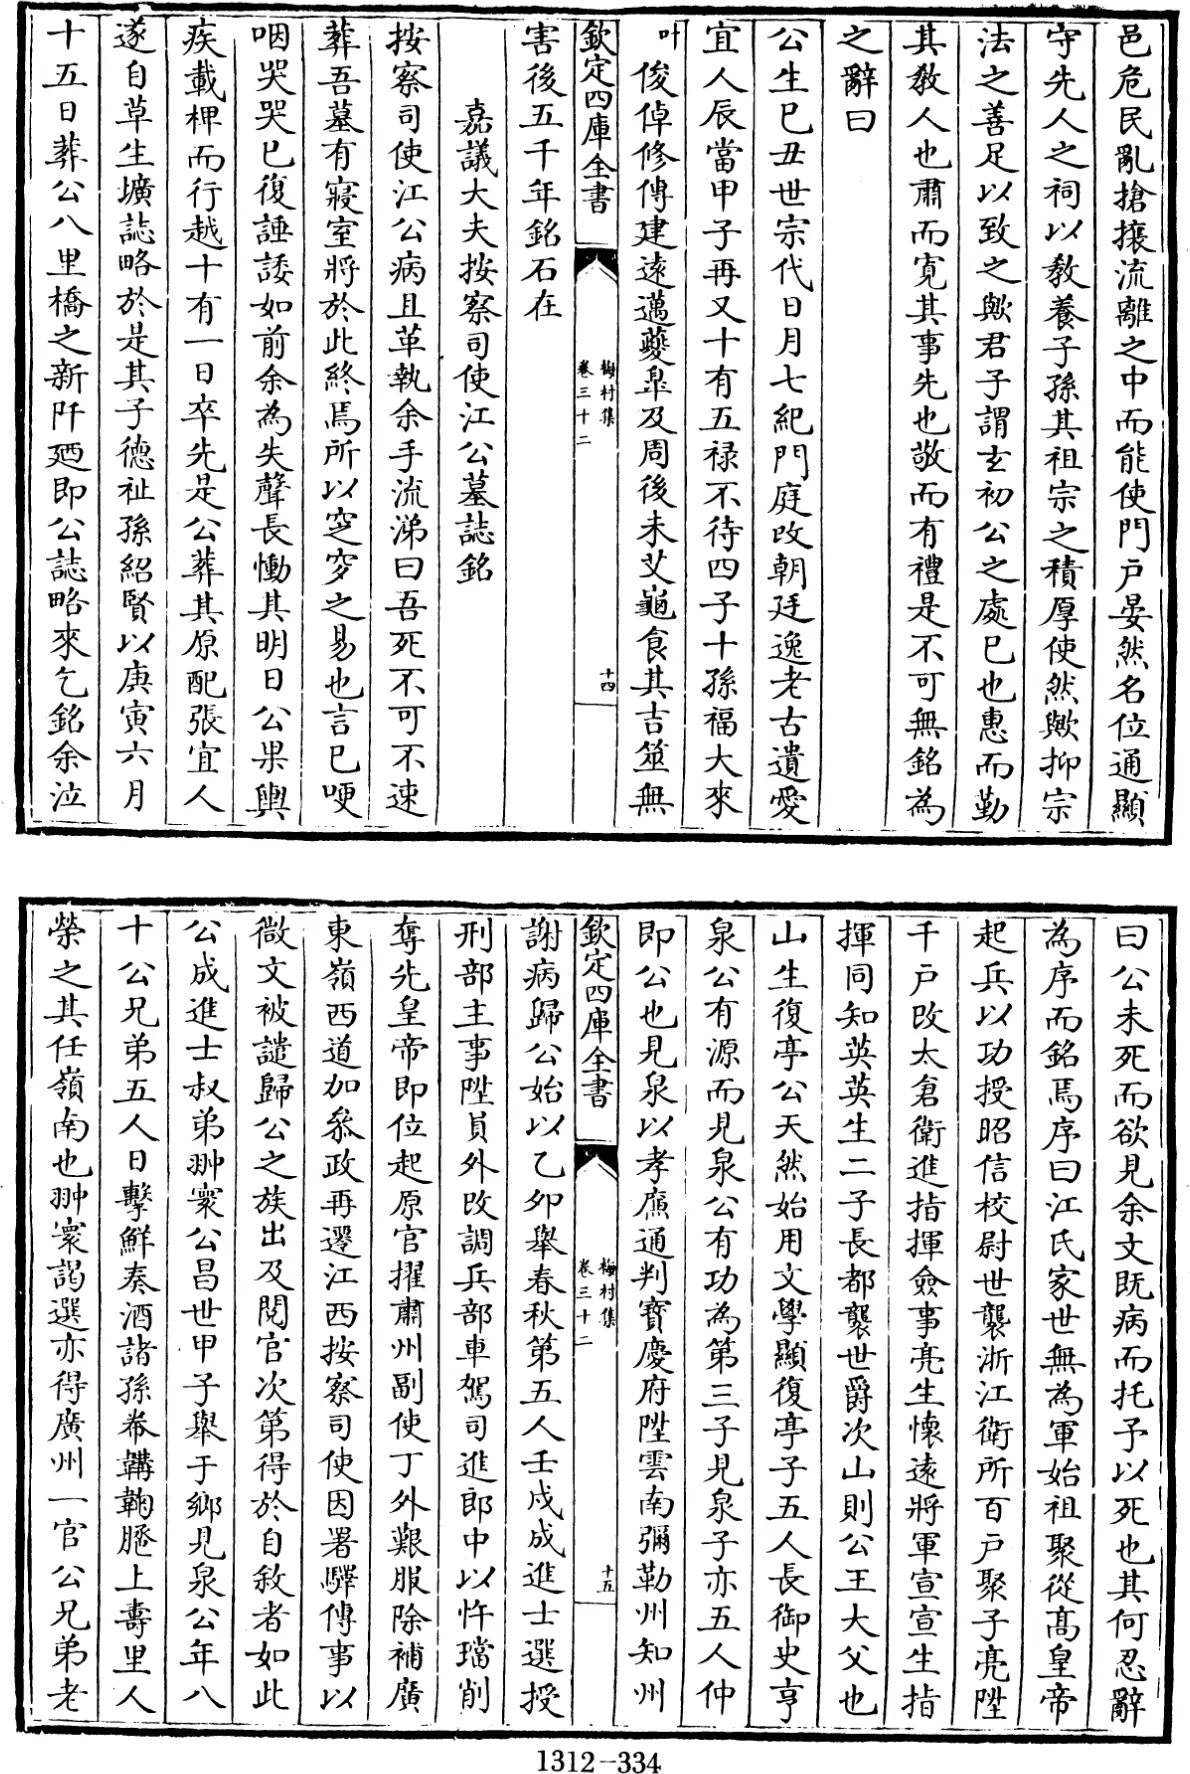 邑危民亂搶攘流離之中而能使門户晏然名位通顯
守先人之祠以教養子孫其祖宗之積厚使然歟抑宗
法之善足以致之歟君子謂玄初公之處已也惠而勤
其教人也肅而寛其事先也敬而有禮是不可無銘為
之辭曰
公生巳丑世宗代日月七紀門庭改朝廷逸老古遺愛
宜人辰當甲子再又十有五禄不待四子十孫福大來
叶俊倬修傳建遠邁夔臯及周後未艾龜食其吉筮無
欽定四庫全書
梅村集
卷三十二
十四
害後五千年銘石在
嘉議大夫按察司使江公墓誌銘
按察司使江公病且革執余手流涕曰吾死不可不速
葬吾墓有寢室將於此終焉所以窆穸之易也言已哽
咽哭哭已復諈諉如前余為失聲長慟其明日公果輿
疾載柙而行越十有一日卒先是公葬其原配張宜人
遂自草生壙誌略於是其子德祉孫紹賢以庚寅六月
十五日葬公八里橋之新阡廼即公誌略來乞銘余泣
曰公未死而欲見余文既病而托予以死也其何忍辭
為序而銘焉序曰江氏家世無為軍始祖聚從髙皇帝
起兵以功授昭信校尉世襲浙江衛所百户聚子亮陞
千户改太倉衛進指揮僉事亮生懷遠將軍宣宣生指
揮同知英英生二子長都襲世爵次山則公王大父也
山生復亭公天然始用文學顯復亭子五人長御史亨
泉公有源而見泉公有功為第三子見泉子亦五人仲
即公也見泉以孝廉通判寶慶府陞雲南彌勒州知州
欽定四庫全書
梅村集
卷三十二
十五
謝病歸公始以乙卯舉春秋第五人壬戌成進士選授
刑部主事陞員外改調兵部車駕司進郎中以忤璫削
奪先皇帝即位起原官擢肅州副使丁外艱服除補廣
東嶺西道加叅政再遷江西按察司使因署驛傳事以
微文被譴歸公之族出及閱官次第得於自敘者如此
公成進士叔弟翀寰公昌世甲子舉于鄉見泉公年八
十公兄弟五人日擊鮮奏酒諸孫帣韝鞠䠆上壽里人
榮之其任嶺南也翀寰謁選亦得廣州一官公兄弟老
1312-334